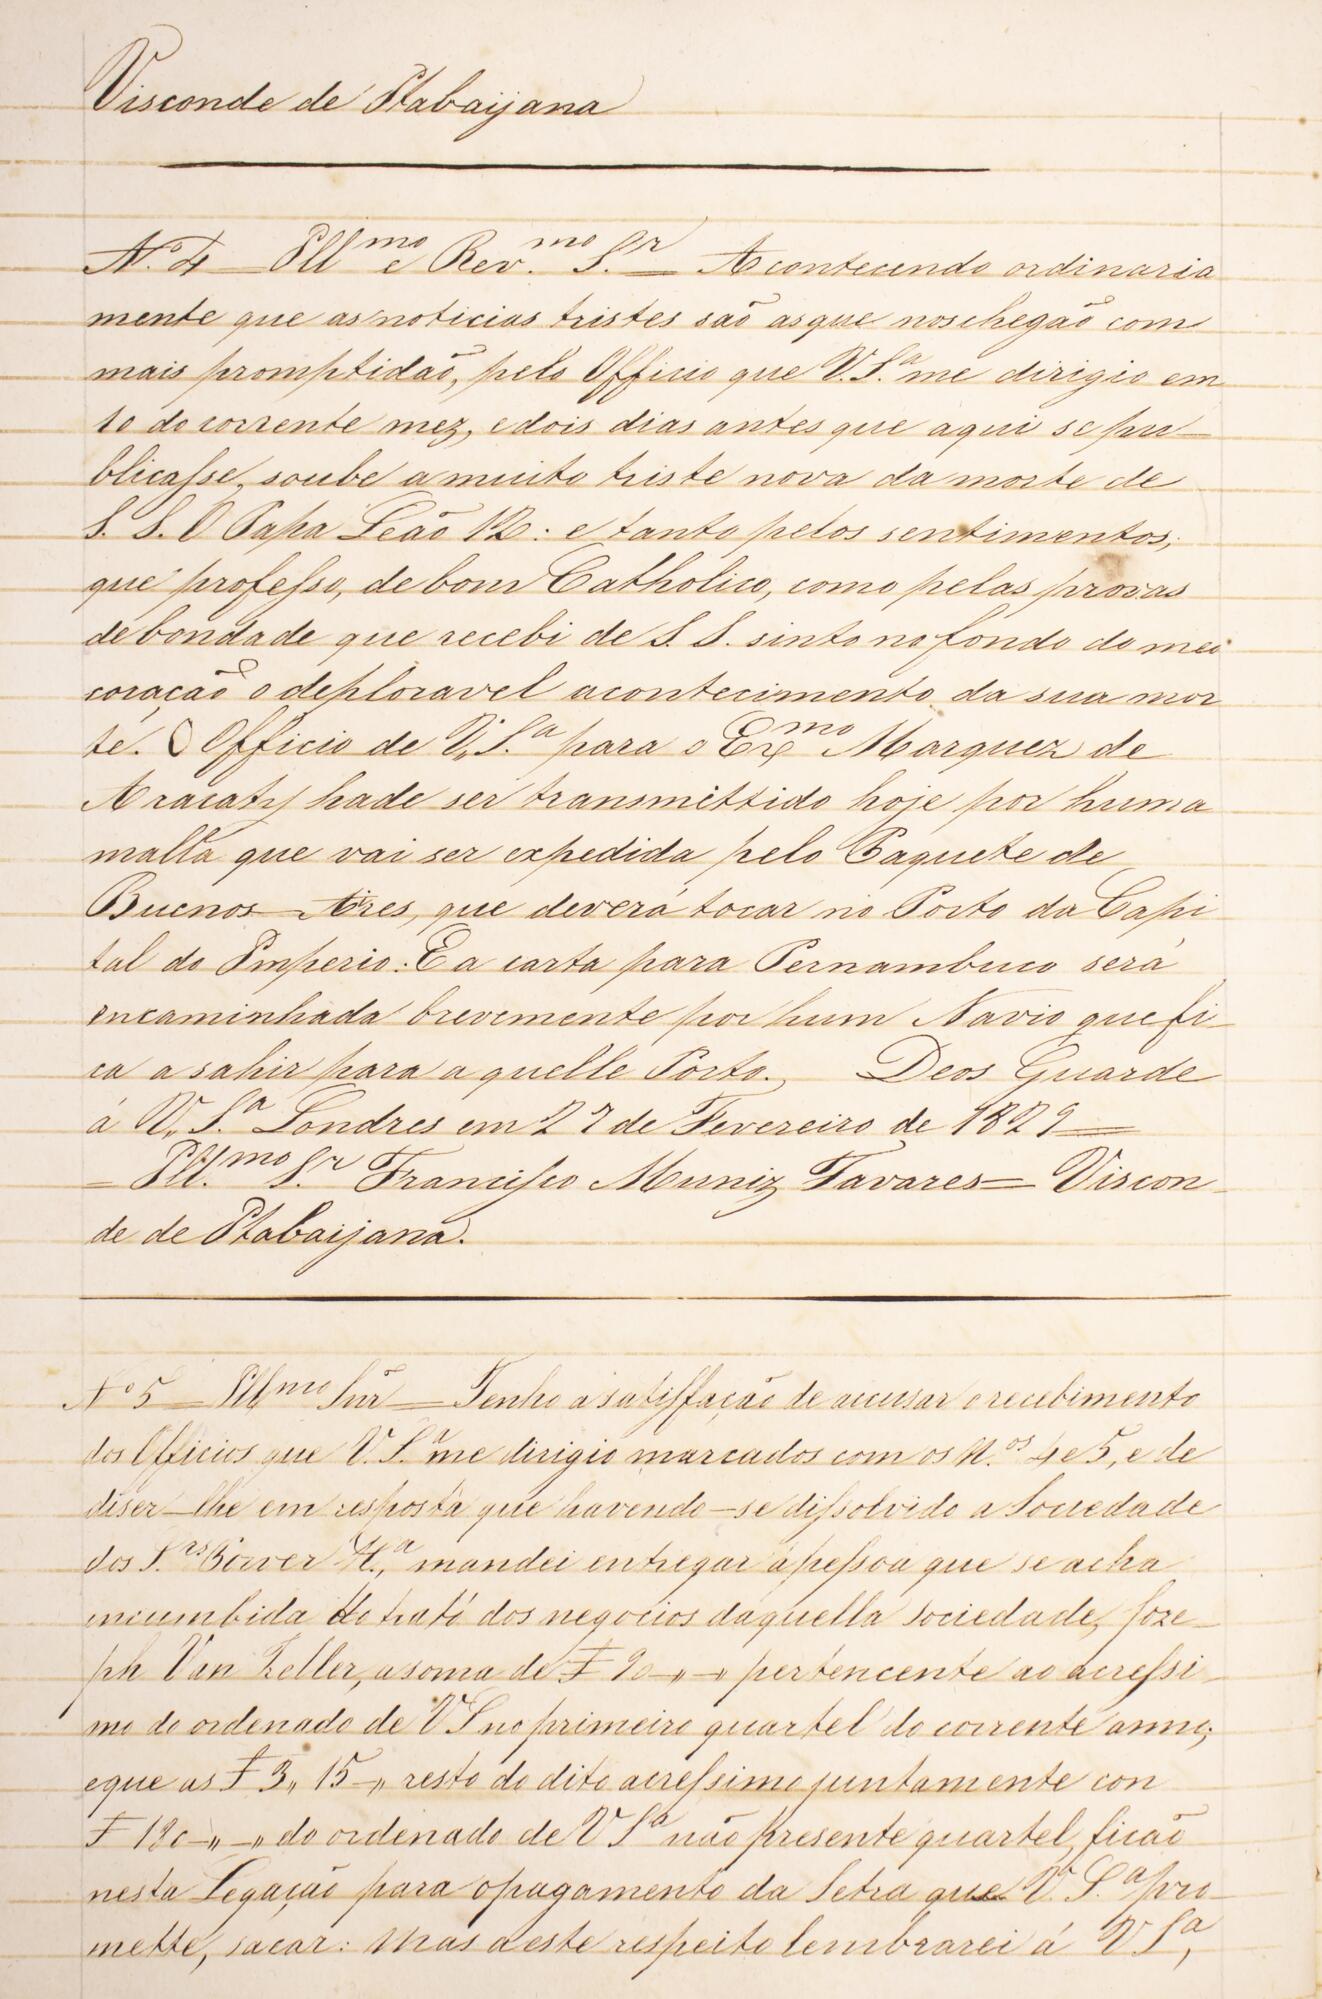 Visconde de Itabaijana
N.º 4 — Ill.mo e Rev.mo S.r — Acontecendo ordinaria
mente que as noticias tristes são as que nos chegão com
mais promptidão, pelo Officio que V. S.ª me dirigio em
10 do corrente mez, e dois dias antes que aqui se pu—
blicasse, soube a muito triste nova da morte de
S. S. O Papa Leão 12: e tanto pelos sentimentos,
que professo, de bom Catholico, como pelas provas
de bondade que recebi de S. S. sinto no fondo do meo
coração o deploravel acontecimento da sua mor
te. O Officio de V. S.ª para o Ex.mo Marquez de
Aracaty hade ser transmittido hoje por huma
malla que vai ser expedida pelo Paquete de
Buenos—Aires, que deverá tocar no Porto da Capi
tal do Imperio: E a carta para Pernambuco será
encaminhada brevemente por hum Navio que fi—
ca a sahir para aquelle Porto. Deos Guarde
á V. S.ª Londres em 27 de Fevereiro de 1829 —
— Ill.mo S.r Francisco Muniz Tavares = Viscon—
de de Itabaijana.
N.º 5 — Ill.mo Snr — Tenho a satisffação de accusar o recebimento
dos Officios que V. S.ª me dirigio marcados com os N.os 4 e 5, e de
diser—lhe em resposta que havendo—se dissolvido a Sociedade
dos S.rs mandei entregar á pessoa que se acha
incumbida do trato dos negocios daquella sociedade, Joze—
ph Van Zeller, a soma de £ 20 —,, —,, pertencente ao acressi—
mo do ordenado de V S no primeiro quartel do corrente anno;
e que as £ 3,, 15 —,, resto do dito acressimo juntamente con
£ 120 —,, —,, do ordenado de V S.ª não presente quartel, ficão
nesta Legação para o pagamento da Letra que V. S.ª pro—
mette, sacar: Mas a este respeito lembrarei á V S.ª,